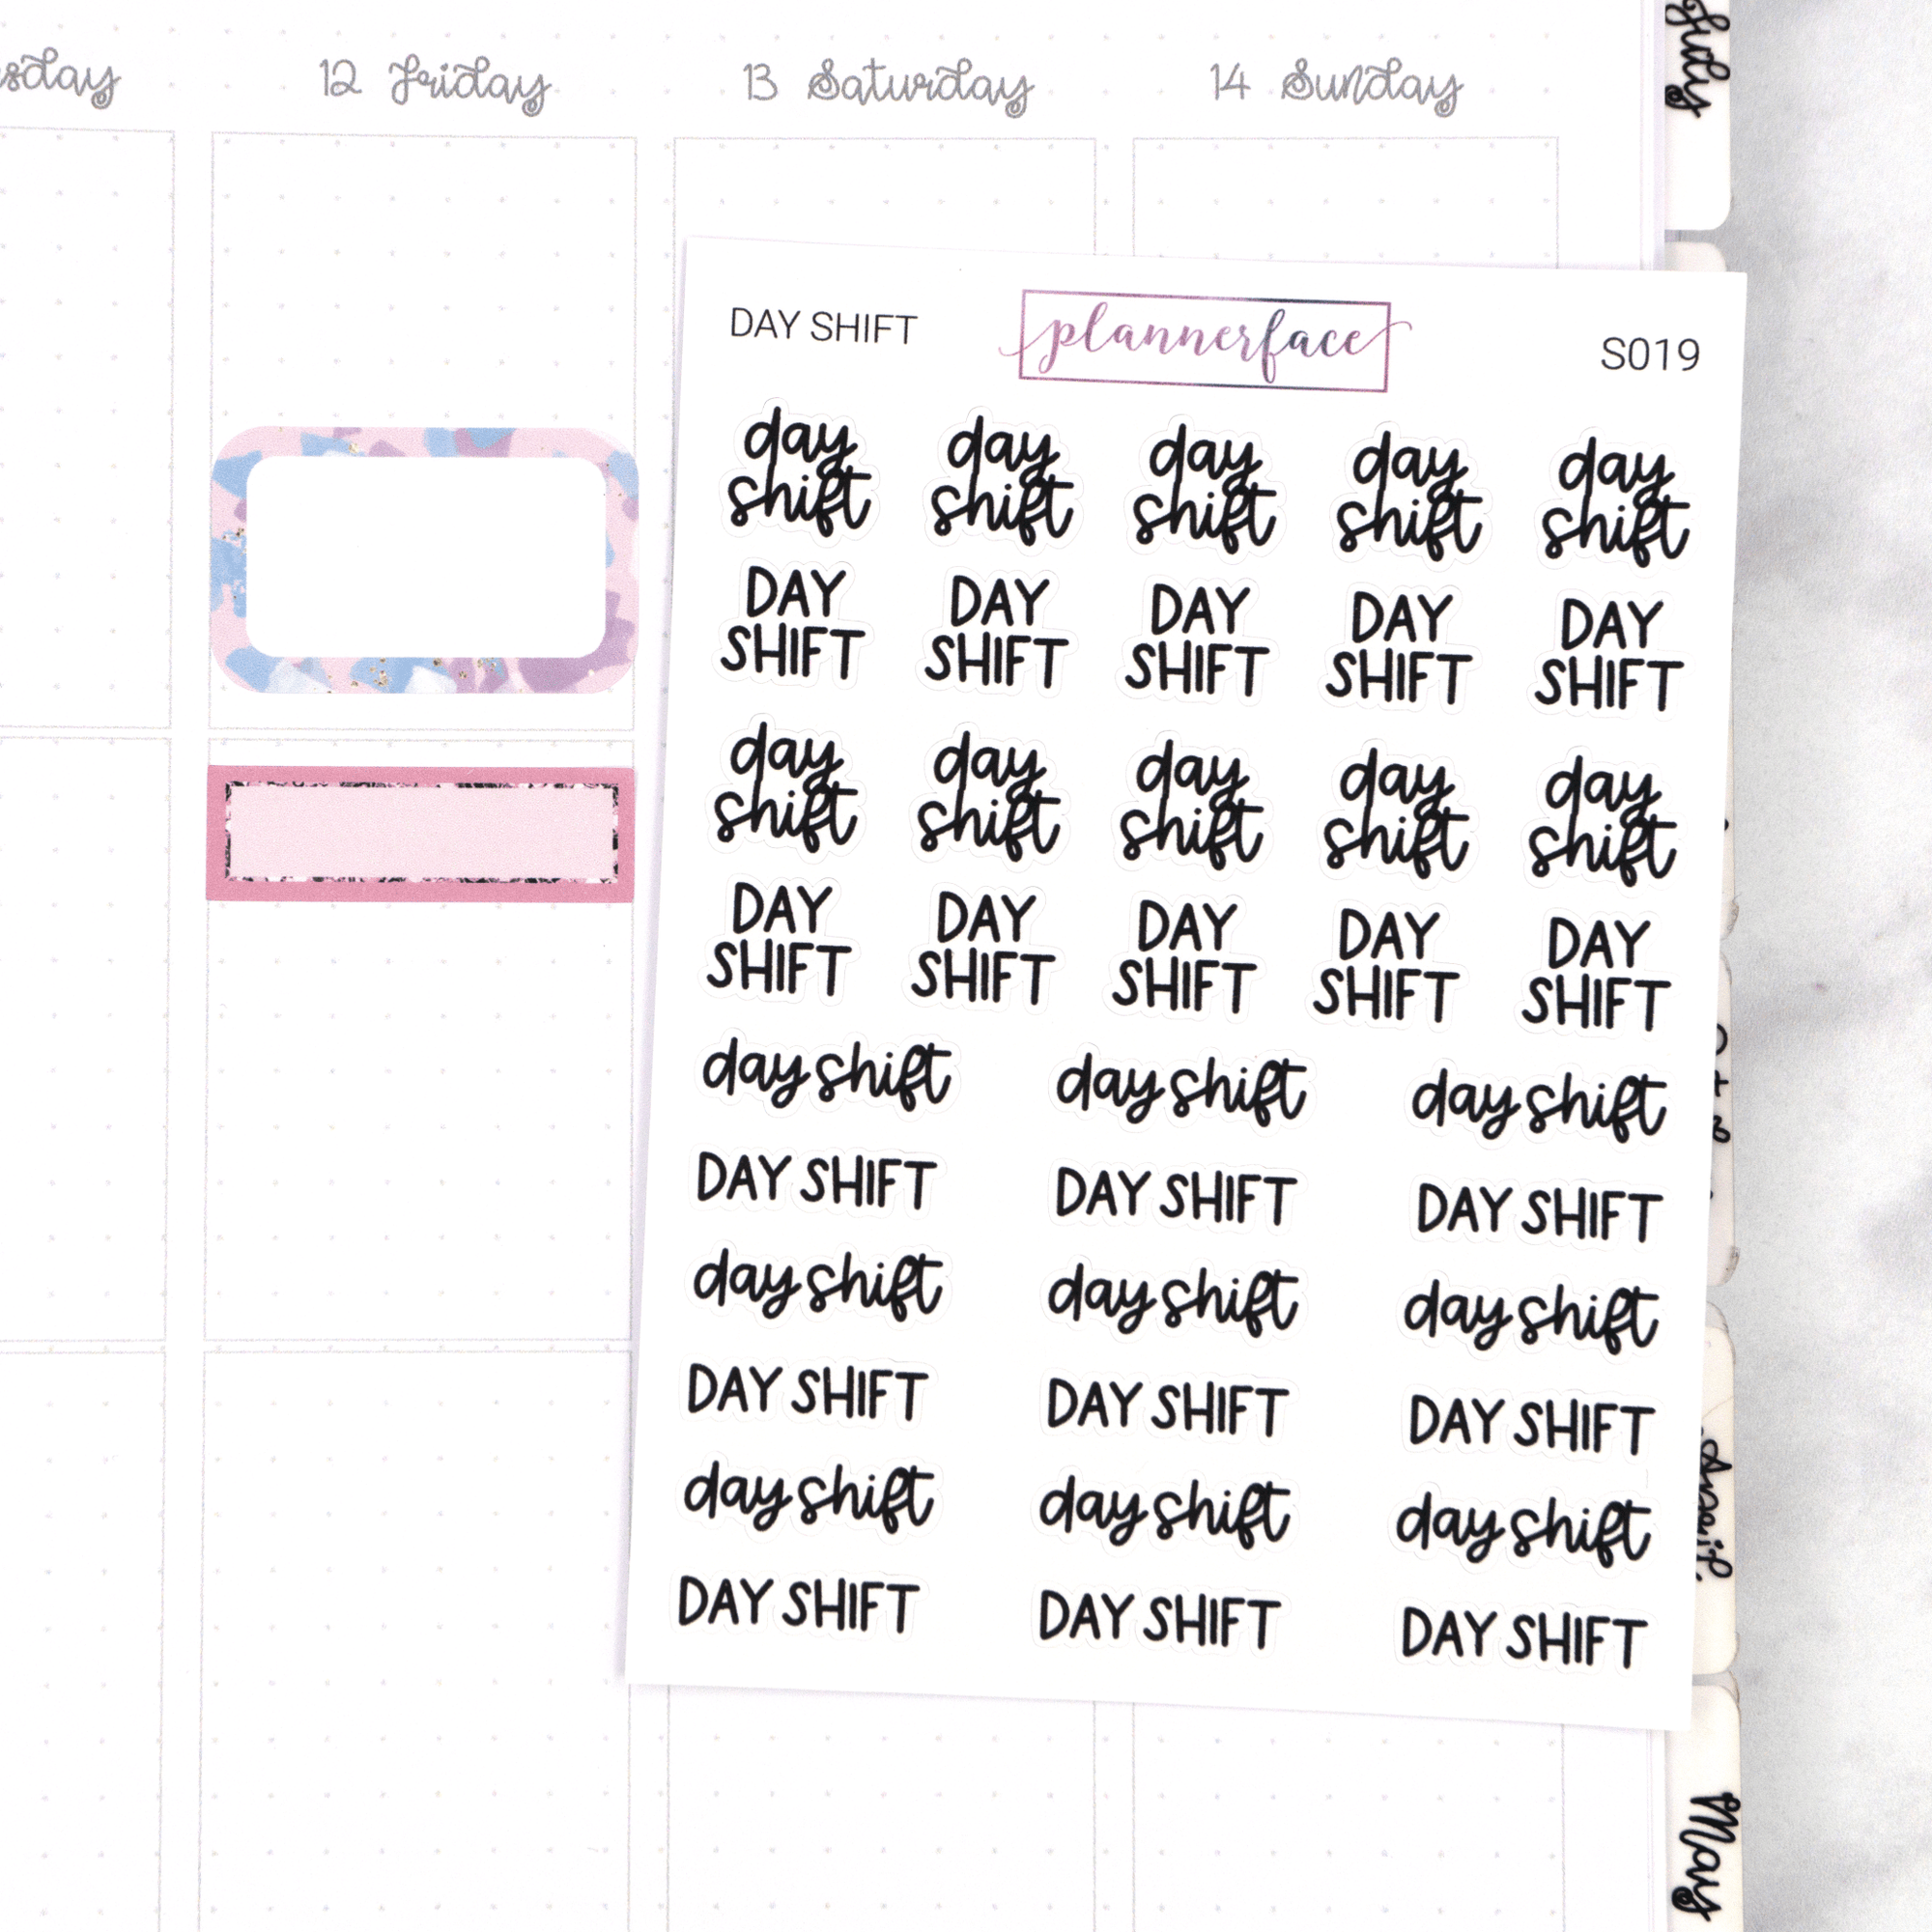 12 Friday 13 Saturday 14 Sunday
DAY SHIFT plannerface S019
day day day day day
shift shift shift shift shift
DAY DAY DAY DAY DAY
SHIFT SHIFT SHIFT SHIFT SHIFT
day day day day day
shift shift shift shift shift
DAY DAY DAY DAY DAY
SHIFT SHIFT SHIFT SHIFT SHIFT
day shift day shift day shift
DAY SHIFT DAY SHIFT DAY SHIFT
day shift day shift day shift
DAY SHIFT DAY SHIFT DAY SHIFT
day shift day shift day shift
DAY SHIFT DAY SHIFT DAY SHIFT
May